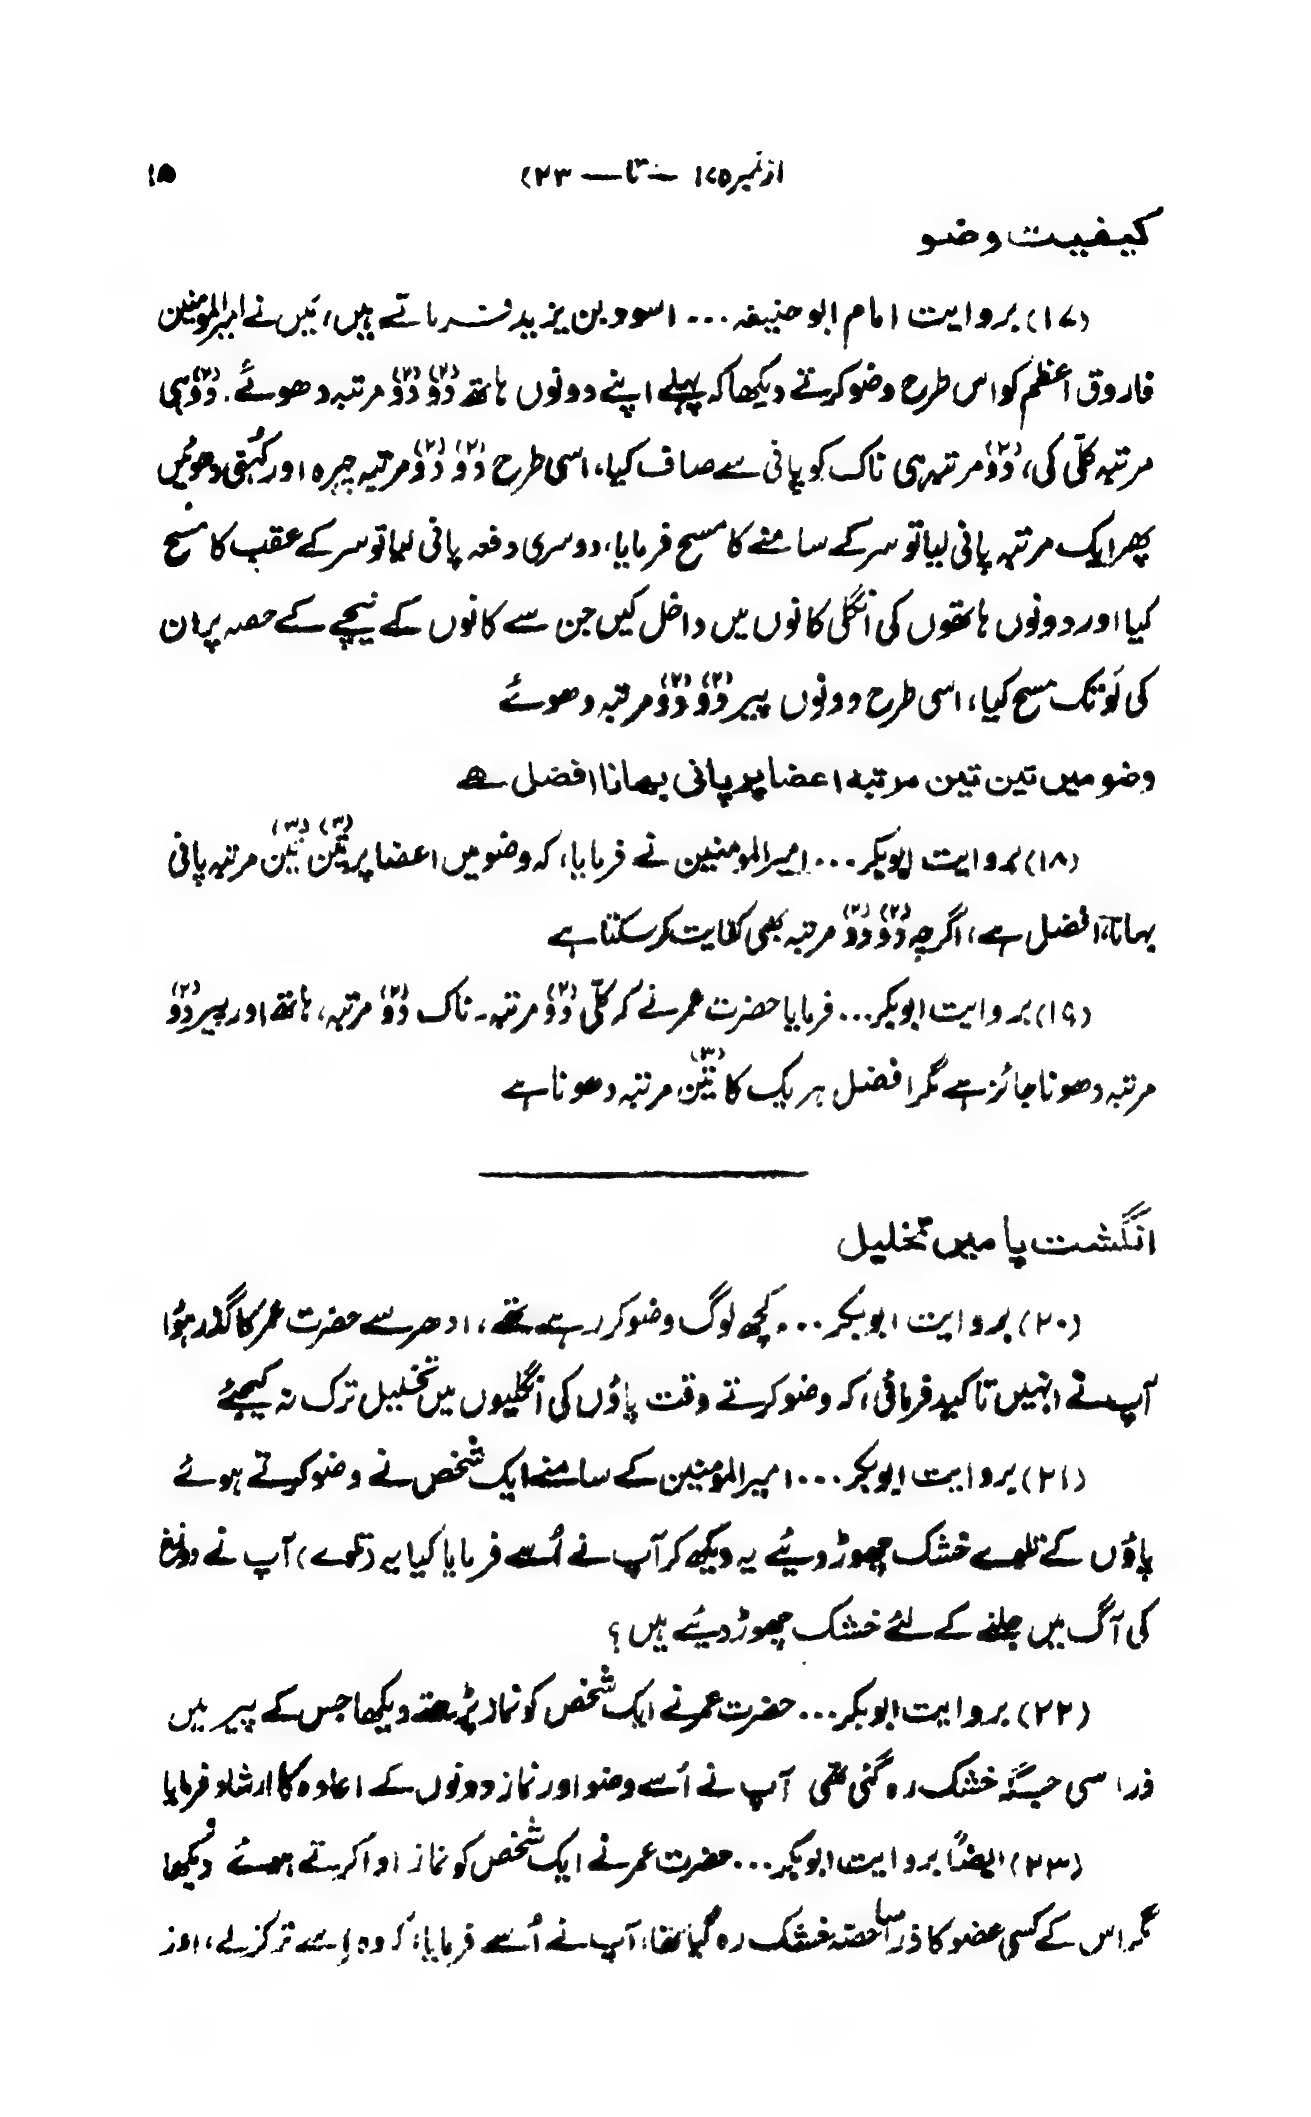 از نمبر ۱۷ — تا — ۲۳) ۱۵
کیفیت وضو
(۱۷) بروایت امام ابو حنیفہ ... اسود بن یزید فرماتے ہیں، میں نے امیرالمومنین
فاروق اعظم کو اس طرح وضو کرتے دیکھا کہ پہلے اپنے دونوں ہاتھ دو(۲) دو(۲) مرتبہ دھوئے۔ دو(۲) ہی
مرتبہ کلّی کی، دو(۲) مرتبہ ہی ناک کو پانی سے صاف کیا، اسی طرح دو(۲) دو(۲) مرتبہ چہرہ اور کہنی دھوئیں
پھر ایک مرتبہ پانی لیا تو سر کے سامنے کا مسح فرمایا، دوسری دفعہ پانی لیا تو سر کے عقب کا مسح
کیا اور دونوں ہاتھوں کی انگلی کانوں میں داخل کیں جن سے کانوں کے نیچے کے حصہ پر ان
کی لَو تک مسح کیا، اسی طرح دونوں پیر دو(۲) دو(۲) مرتبہ دھوئے
وضو میں تین تین مرتبہ اعضا پر پانی بہانا افضل ہے
(۱۸) بروایت ابوبکر ... امیرالمومنین نے فرمایا، کہ وضو میں اعضا پر تین(۳) تین(۳) مرتبہ پانی
بہانا افضل ہے، اگرچہ دو(۲) دو(۲) مرتبہ بھی کفایت کر سکتا ہے
(۱۹) بروایت ابوبکر ... فرمایا حضرت عمر نے کہ کلّی دو(۲) مرتبہ۔ ناک دو(۲) مرتبہ، ہاتھ اور پیر دو(۲)
مرتبہ دھونا جائز ہے مگر افضل ہر یک کا تین(۳) مرتبہ دھونا ہے
انگشت پا میں تخلیل
(۲۰) بروایت ابوبکر ... کچھ لوگ وضو کر رہے تھے، ادھر سے حضرت عمر کا گذر ہوا
آپ نے انہیں تاکید فرمائی، کہ وضو کرتے وقت پاؤں کی انگلیوں میں تخلیل ترک نہ کیجئے
(۲۱) بروایت ابوبکر ... امیرالمومنین کے سامنے ایک شخص نے وضو کرتے ہوئے
پاؤں کے تلوے خشک چھوڑ دیئے یہ دیکھ کر آپ نے اُسے فرمایا کیا یہ (تلوے) آپ نے دوزخ
کی آگ میں جلنے کے لئے خشک چھوڑ دیئے ہیں؟
(۲۲) بروایت ابوبکر ... حضرت عمر نے ایک شخص کو نماز پڑھتے دیکھا جس کے پیر میں
ذرا سی جگہ خشک رہ گئی تھی آپ نے اُسے وضو اور نماز دونوں کے اعادہ کا ارشاد فرمایا
(۲۳) ایضاً بروایت ابوبکر ... حضرت عمر نے ایک شخص کو نماز ادا کرتے ہوئے دیکھا
مگر اس کے کسی عضو کا ذرا سا حصّہ خشک رہ گیا تھا، آپ نے اُسے فرمایا، کہ وہ اسے تر کرلے، اور